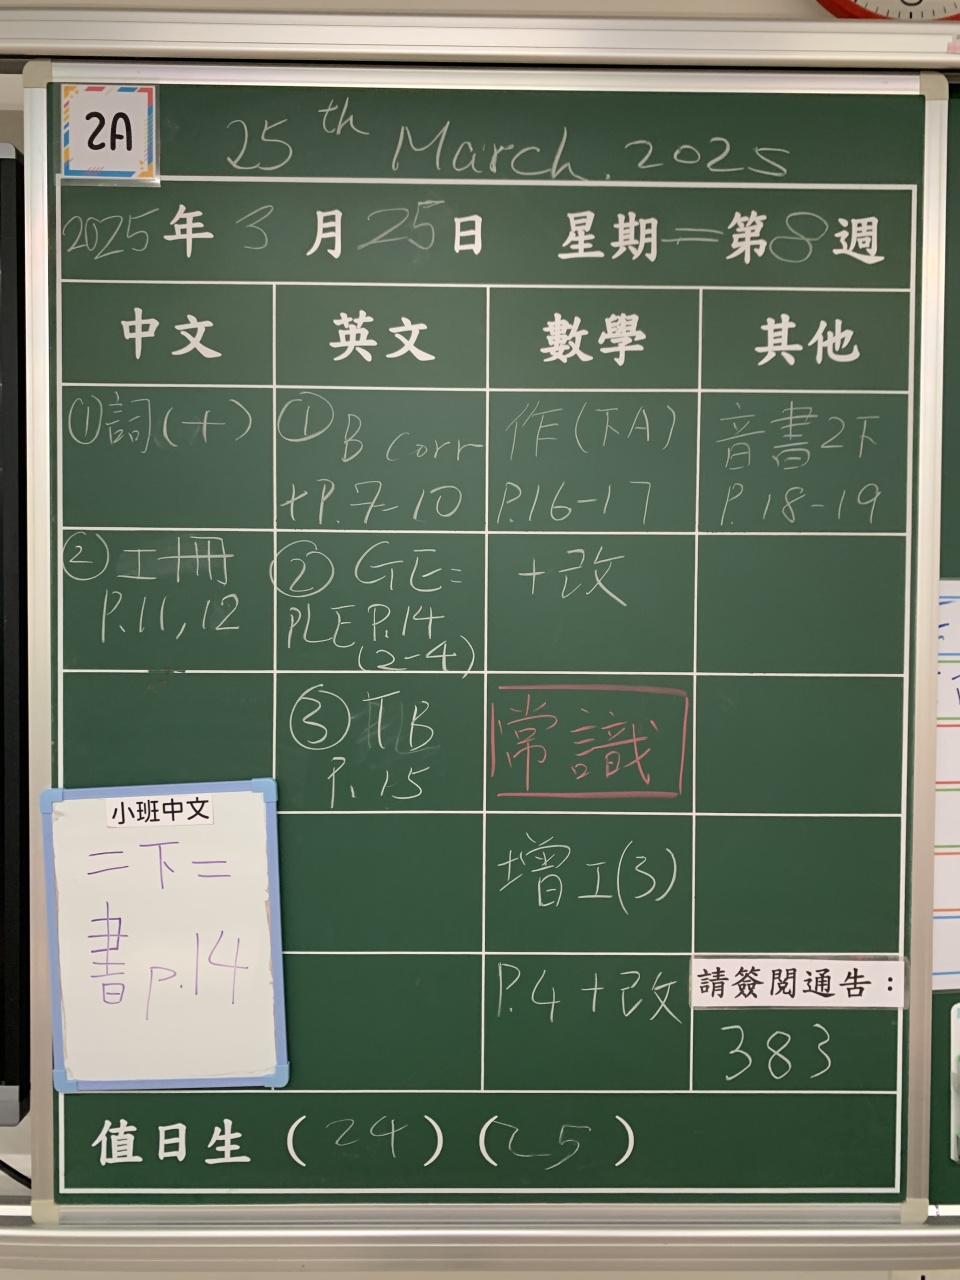 2A
25th March. 2025
2025年 3 月 25日 星期二第8週
中文
英文
數學
其他
①詞(十)
②工冊
P.11, 12
①B Corr
+P.7-10
②GE:
PLE P.14
(2-4)
③TB
P.15
作(下A)
P.16-17
+改
常識
增工(3)
P.4 +改
音書2下
P.18-19
小班中文
二下二
書 p.14
請簽閱通告:
383
值日生 (24) (25)